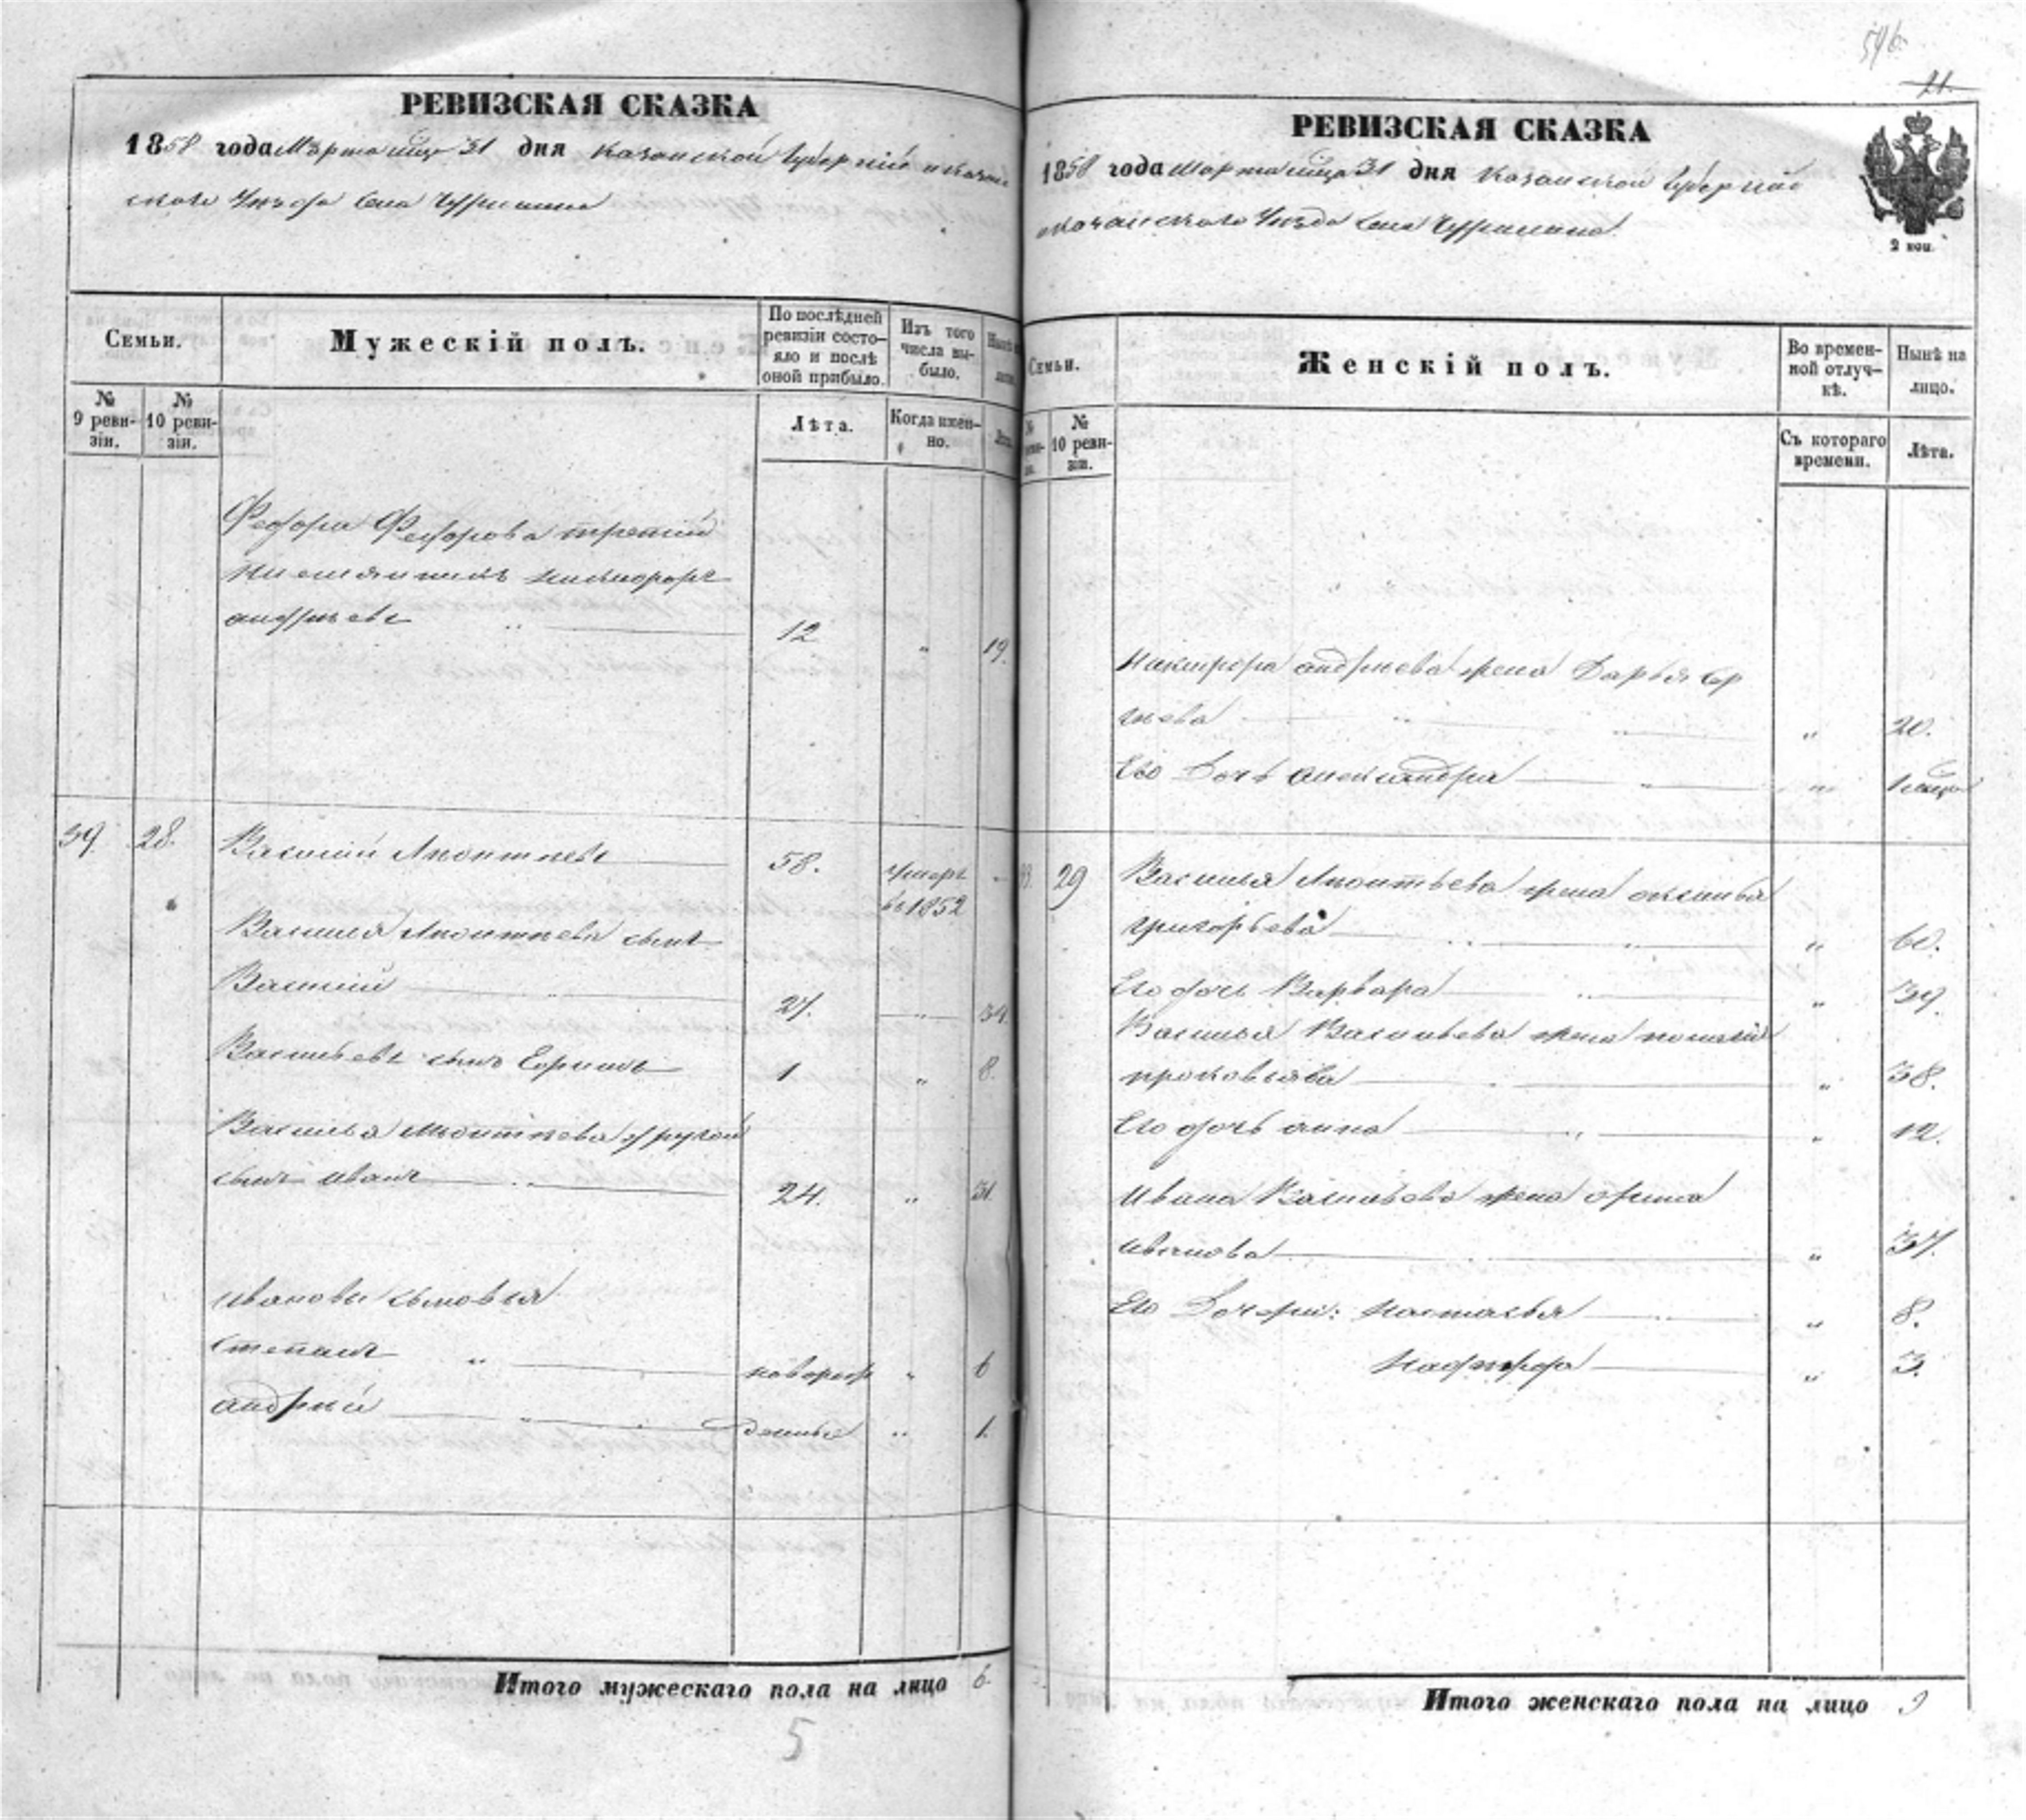 РЕВИЗСКАЯ СКАЗКА
1858 года Марта мца 31 дня Казанской Губернiи и Казан
скаго Уезда Села
Семьи.
Мужескiй полъ.
По послѣдней ревизiи состо-
яло и послѣ
оной прибыло.
Изъ того
числа вы-
было.
№
9 реви-
зiи.
№
10 реви-
зiи.
Лѣта.
Когда имен-
но.
Федора Федорова третiй
племянникъ Никифоръ
андрѣевъ 12 " 19.
39. 28. Василiй Леонтьевъ 58. умеръ
въ 1852
Василья Леонтьева сынъ
Василiй 27. " 34.
Васильевъ сынъ Ефимъ 1 " 8.
Василья Леонтьева другой
сынъ иванъ 24. " 31.
ивановы сыновья
степанъ " новорож " 6
андрѣй денные " 1.
Итого мужескаго пола на лицо 6.
5
546
21.
РЕВИЗСКАЯ СКАЗКА
1858 года Марта мца 31 дня Казанской Губернiи
и Казанскаго Уезда Села
2 коп.
Семьи.
Женскiй полъ.
Во времен-
ной отлуч-
кѣ.
Нынѣ на
лицо.
№
10 реви-
зiи.
Съ котораго
времени.
Лѣта.
Никифора андрѣева жена Дарья Сер
гѣева " 20.
Его Дочь александра " 1 мца
29 Василья Леонтьева жена
григорьева " 60.
Его дочь Варвара " 39.
Василья Васильева жена
" 38.
Его дочь анна " 12.
Ивана Васильева жена орина
иванова " 37.
Его Дочери: Настасья " 8.
" 3.
Итого женскаго пола на лицо 9